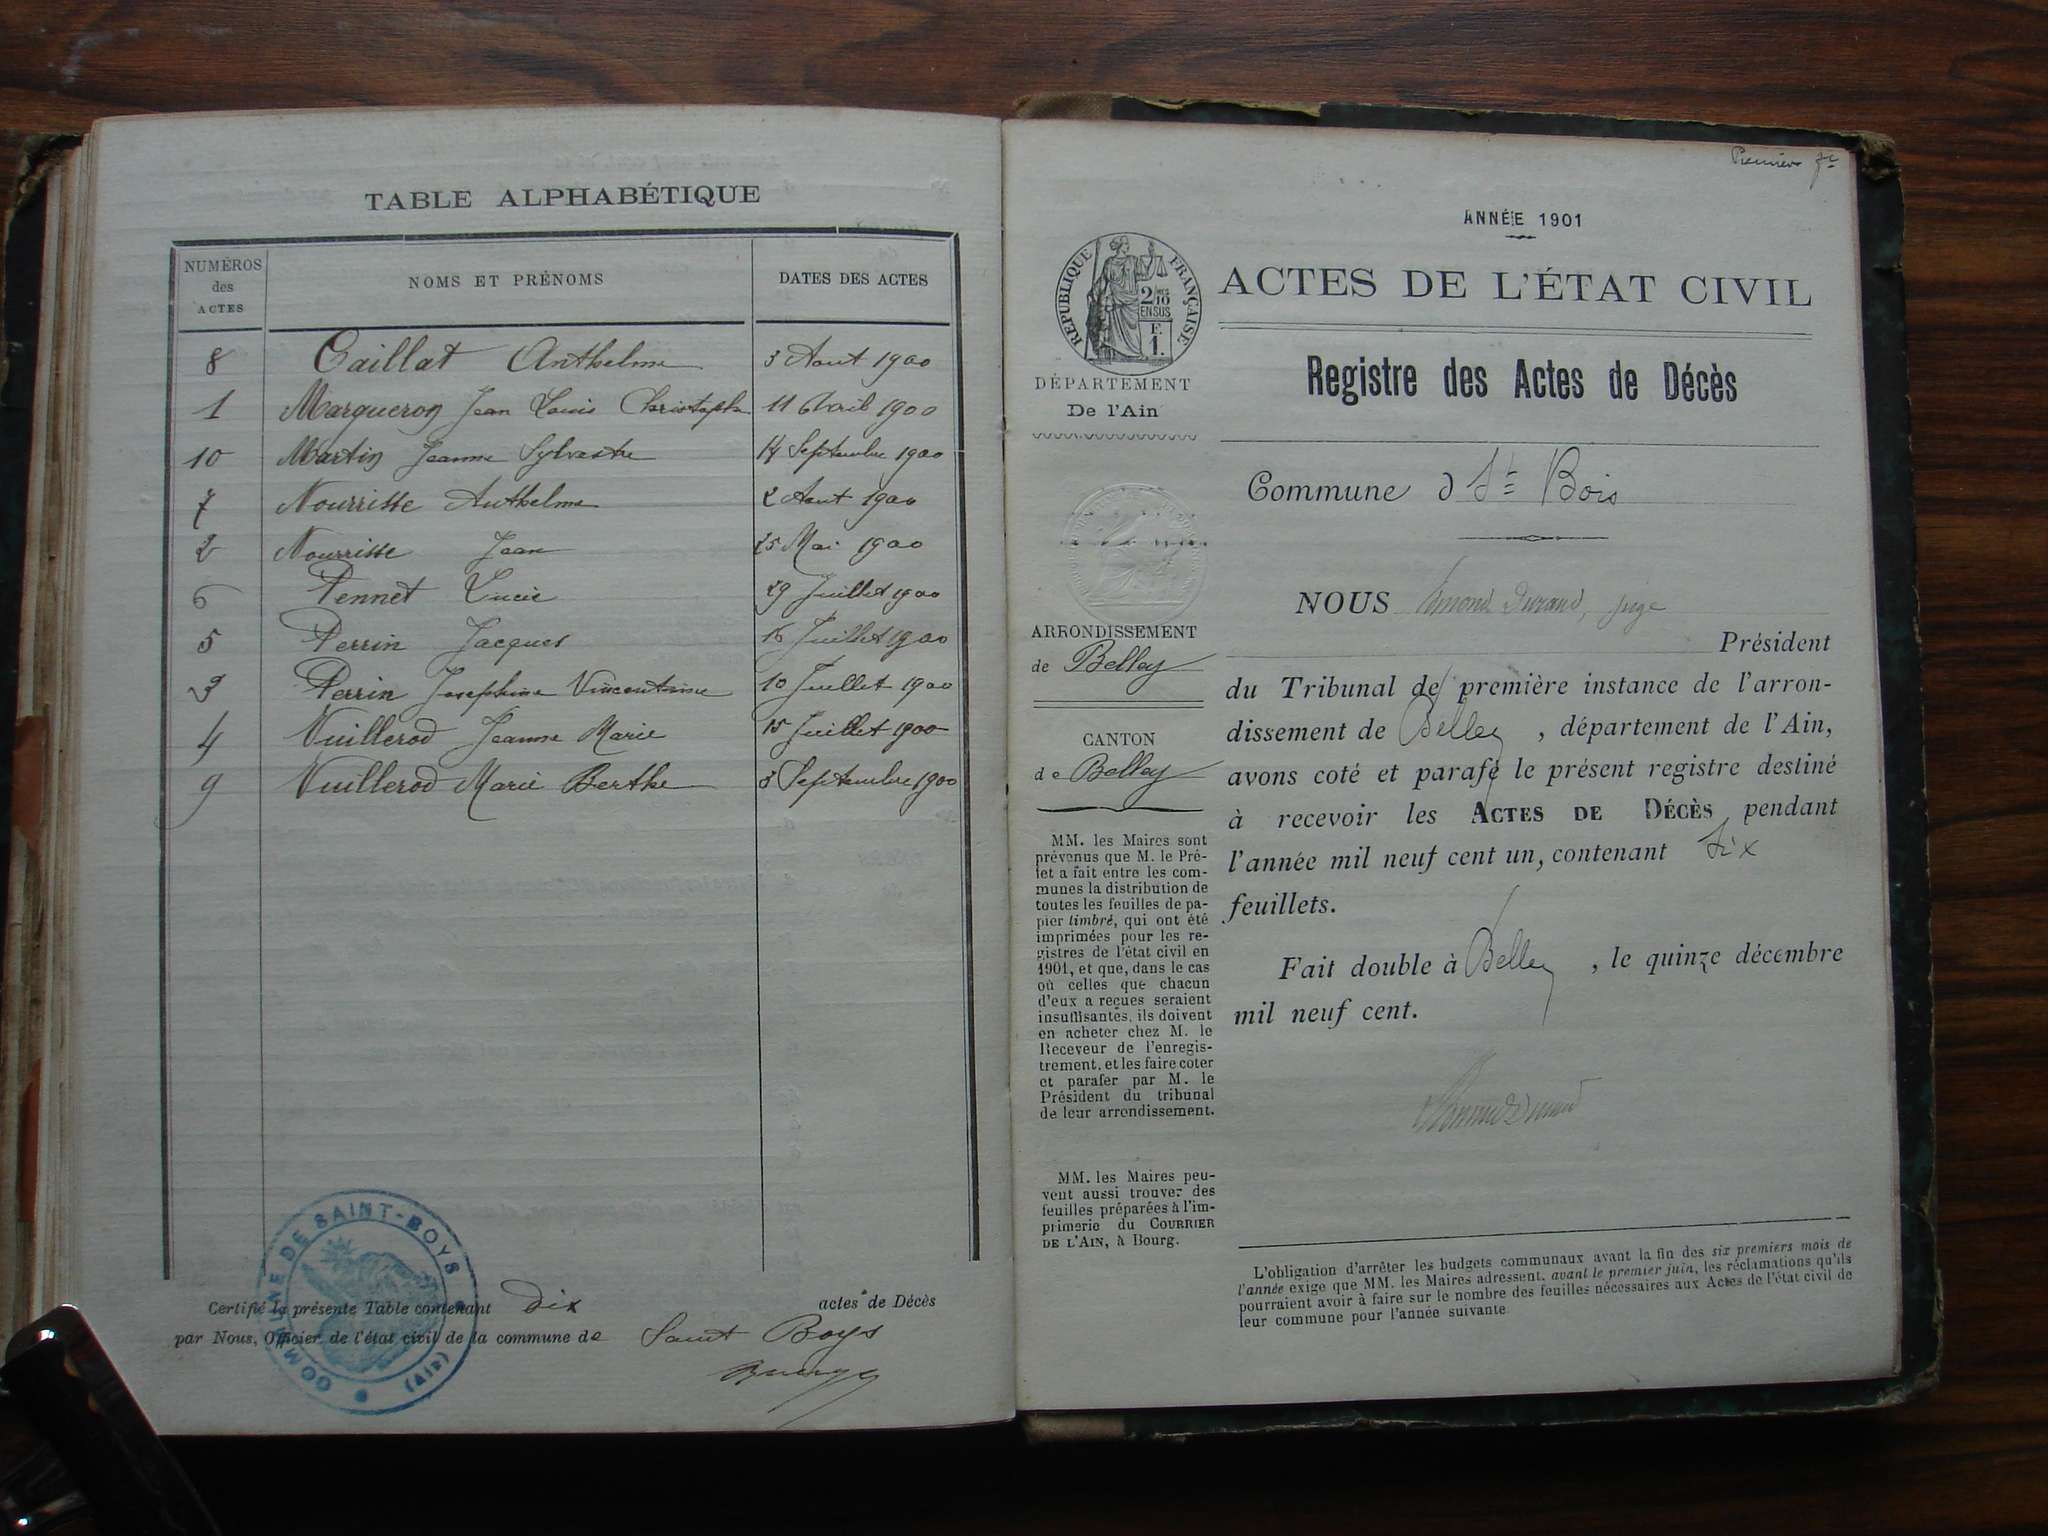 TABLE ALPHABÉTIQUE
NUMÉROS des ACTES NOMS ET PRÉNOMS DATES DES ACTES
8 Caillat Anthelme 3 Aout 1900
1 Margueron Jean Louis Christophe 11 Avril 1900
10 Martin Jeanne Sylvestre 14 Septembre 1900
7 Nourrisse Anthelme 2 Aout 1900
2 Nourrisse Jean 25 Mai 1900
6 Pennet Lucie 29 Juillet 1900
5 Perrin Jacques 16 Juillet 1900
3 Perrin Josephine Vincentine 10 Juillet 1900
4 Vuillerod Jeanne Marie 15 Juillet 1900
9 Vuillerod Marie Berthe 3 Septembre 1900
Certifié la présente Table contenant dix actes de Décès
par Nous, Officier de l'état civil de la commune de Saint Boys
COMMUNE DE SAINT-BOYS
(Ain)
Premier
ANNÉE 1901
RÉPUBLIQUE FRANÇAISE
2/10
EN SUS
F.
1.
ACTES DE L'ÉTAT CIVIL
Registre des Actes de Décès
DÉPARTEMENT
De l'Ain
Commune d St Bois
NOUS Edmond Durand, juge
Président
du Tribunal de première instance de l'arron-
dissement de Belley, département de l'Ain,
avons coté et parafé le présent registre destiné
à recevoir les ACTES DE DÉCÈS pendant
l'année mil neuf cent un, contenant six
feuillets.
Fait double à Belley, le quinze décembre
mil neuf cent.
ARRONDISSEMENT
de Belley
CANTON
de Belley
MM. les Maires sont
prévenus que M. le Pré-
fet a fait entre les com-
munes la distribution de
toutes les feuilles de pa-
pier timbré, qui ont été
imprimées pour les re-
gistres de l'état civil en
1901, et que, dans le cas
où celles que chacun
d'eux a reçues seraient
insuffisantes, ils doivent
en acheter chez M. le
Receveur de l'enregis-
trement, et les faire coter
et parafer par M. le
Président du tribunal
de leur arrondissement.
MM. les Maires peu-
vent aussi trouver des
feuilles préparées à l'im-
primerie du COURRIER
DE L'AIN, à Bourg.
L'obligation d'arrêter les budgets communaux avant la fin des six premiers mois de
l'année exige que MM. les Maires adressent, avant le premier juin, les réclamations qu'ils
pourraient avoir à faire sur le nombre des feuilles nécessaires aux Actes de l'état civil de
leur commune pour l'année suivante.